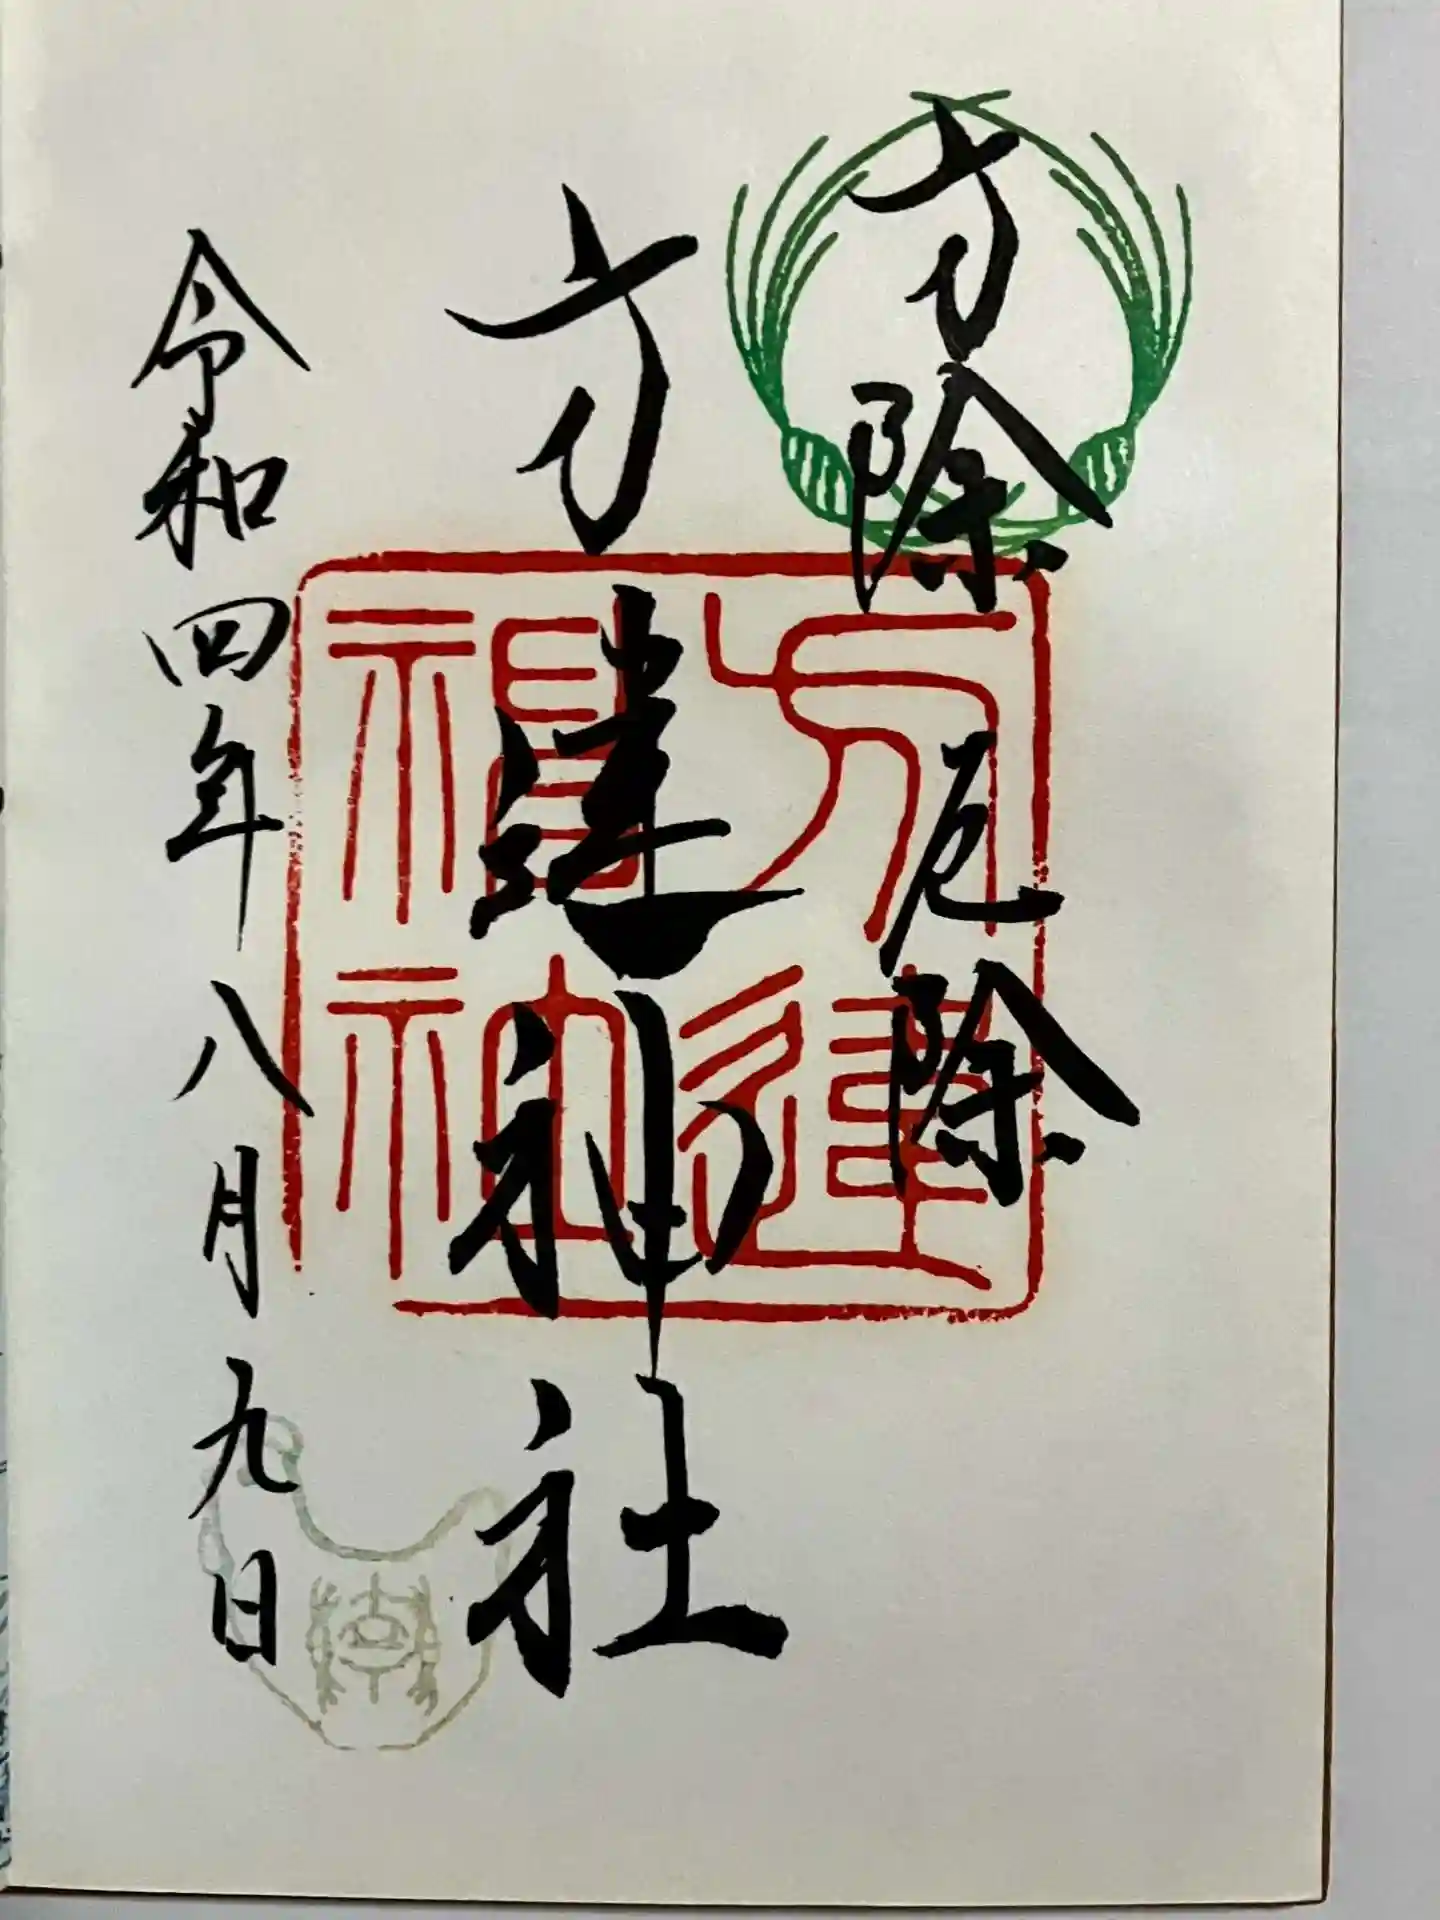 方除
厄除
方違神社
令和四年八月九日
方違
神